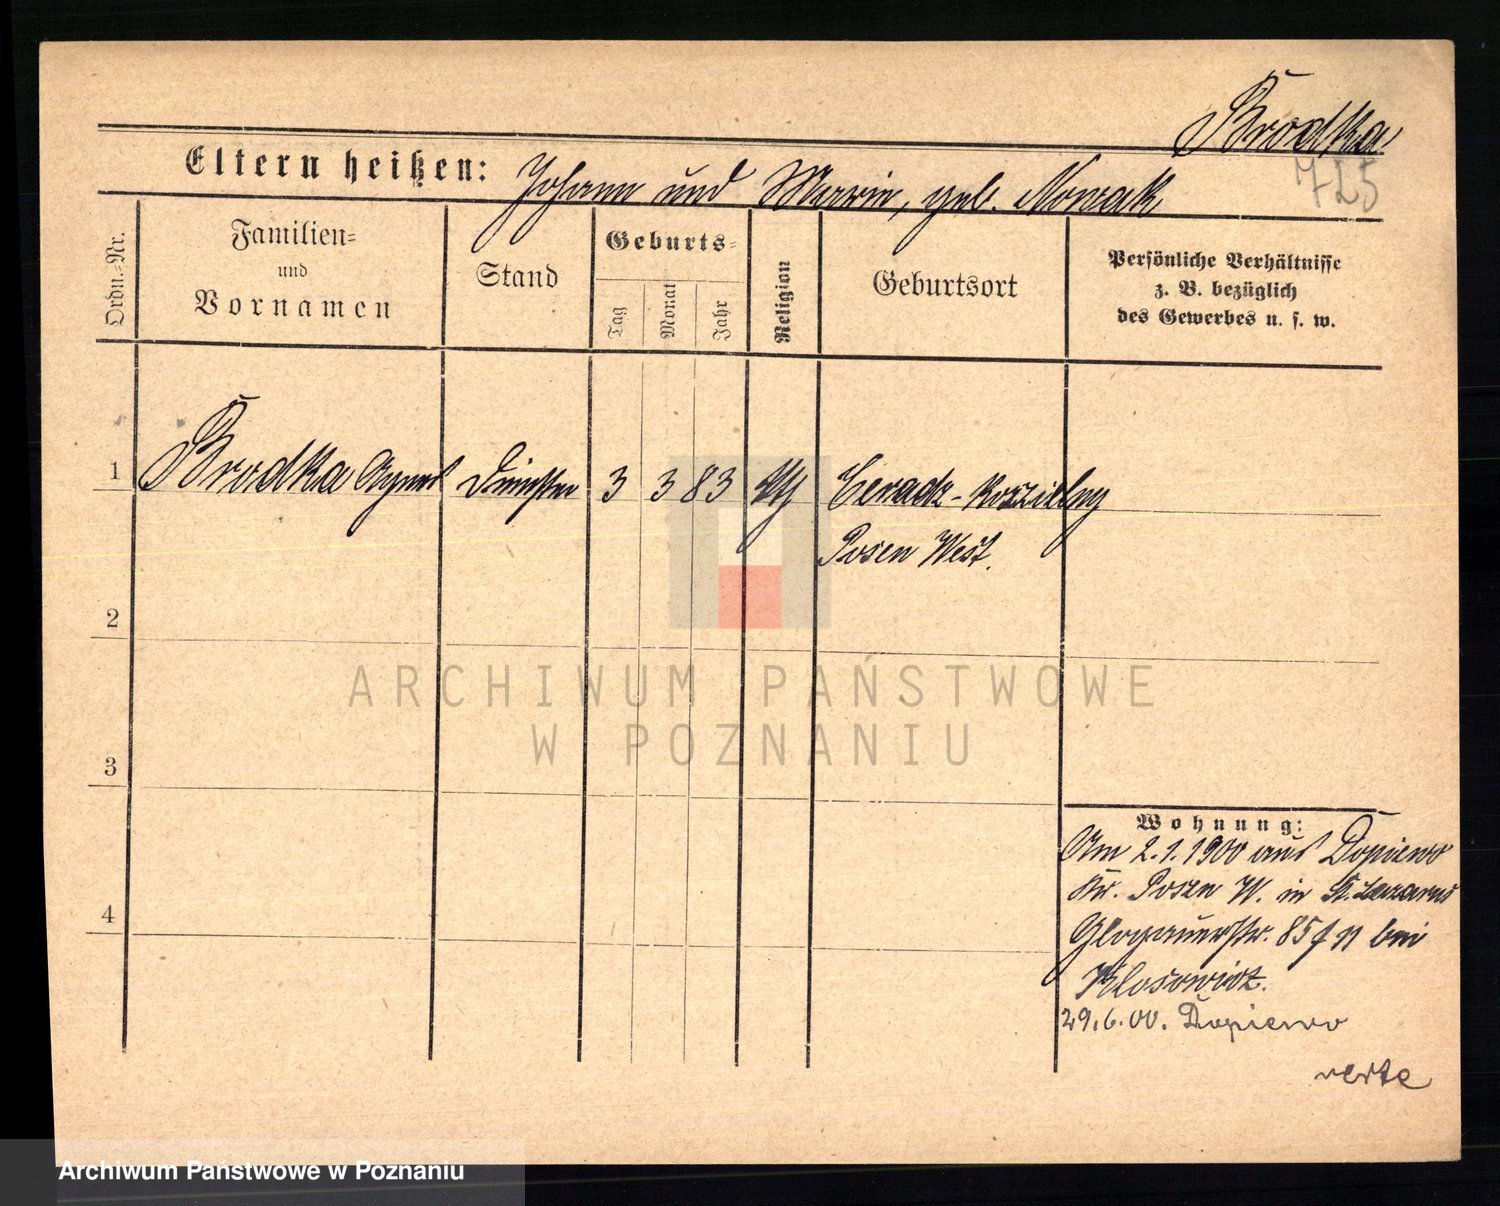 Brodka
725
Eltern heißen: Johann und Marrin, geb. Nowak
Ordn.-Nr.
Familien-
und
Vornamen
Stand
Geburts-
Tag
Monat
Jahr
Religion
Geburtsort
Persönliche Verhältnisse
z. B. bezüglich
des Gewerbes u. s. w.
1 Brodka Agnes 3 3 83 Ceradz-Koszielny
Posen West.
2
3
4
Wohnung:
Am 2.1.1900 aus Dopiewo
Kr. Posen W. in St. Lazarus
Glogauerstr. 85 bei
Klosowicz.
29.6.00. Dopiewo
verte
ARCHIWUM PAŃSTWOWE
W POZNANIU
Archiwum Państwowe w Poznaniu